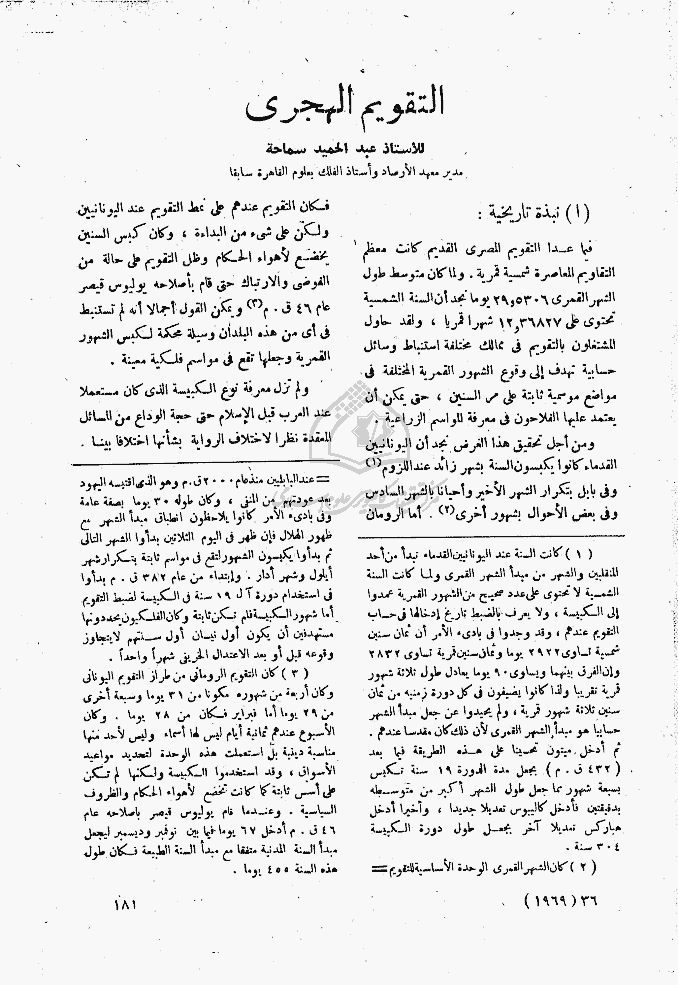 التقويم الهجرى
للأستاذ عبد الحميد سماحة
مدير معهد الأرصاد وأستاذ الفلك بعلوم القاهرة سابقا
(١) نبذة تاريخية :
فيما عدا التقويم المصرى القديم كانت معظم
التقاويم المعاصرة شمسية قمرية . ولما كان متوسط طول
الشهر القمرى ٢٩,٥٣٠٦ يوما نجد أن السنة الشمسية
تحتوى على ١٢,٣٦٨٢٧ شهرا قمريا ، ولقد حاول
المشتغلون بالتقويم فى ممالك مختلفة استنباط وسائل
حسابية تهدف إلى وقوع الشهور القمرية المختلفة فى
مواضع موسمية ثابتة على مر السنين ، حتى يمكن أن
يعتمد عليها الفلاحون فى معرفة المواسم الزراعية .
ومن أجل تحقيق هذا الغرض نجد أن اليونانيين
القدماء كانوا يكبسون السنة بشهر زائد عند اللزوم(١)
وفى بابل بتكرار الشهر الأخير وأحيانا بالشهر السادس
وفى بعض الأحوال بشهور أخرى(٢) . أما الرومان
فكان التقويم عندهم على نمط التقويم عند اليونانيين
ولكن على شىء من البداءة ، وكان كبس السنين
يخضع لأهواء الحكام وظل التقويم على حالة من
الفوضى والارتباك حتى قام بأصلاحه يوليوس قيصر
عام ٤٦ ق . م(٣) ويمكن القول أجمالا أنه لم تستنبط
فى أى من هذه البلدان وسيلة محكمة لكبس الشهور
القمرية وجعلها تقع فى مواسم فلكية معينة .
ولم تزل معرفة نوع الكبيسة الذى كان مستعملا
عند العرب قبل الإسلام حتى حجة الوداع من المسائل
المعقدة نظرا لاختلاف الرواية بشأنها اختلافا بينا .
(١) كانت السنة عند اليونانيين القدماء تبدأ من أحد
المنقلبين والشهر من مبدأ الشهر القمرى ولما كانت السنة
الشمسية لا تحتوى على عدد صحيح من الشهور القمرية عمدوا
إلى الكبيسة ، ولا يعرف بالضبط تاريخ إدخالها فى حساب
التقويم عندهم ، وقد وجدوا فى بادىء الأمر أن ثمان سنين
شمسية تساوى ٢٩٢٢ يوما وثمان سنين قمرية تساوى ٢٨٣٢
وإن الفرق بينهما ويساوى ٩٠ يوما يعادل طول ثلاثة شهور
قمرية تقريبا ولذا كانوا يضيفون فى كل دورة زمنيه من ثمان
سنين ثلاثة شهور قمرية ، ولم يحيدوا عن جعل مبدأ الشهر
حسابيا هو مبدأ الشهر القمرى لأن ذلك كان مقدسا عندهم .
ثم أدخل ميتون تحسينا على هذه الطريقة فيما بعد
(٤٣٢ ق . م) بجعل مدة الدورة ١٩ سنة تكبس
بسبعة شهور مما جعل طول الشهر أكبر من متوسطه
بدقيقتين فأدخل كاليبوس تعديلا جديدا ، وأخيرا أدخل
هباركس تعديلا آخر بجعل طول دورة الكبيسة
٣٠٤ سنة .
(٢) كان الشهر القمرى الوحدة الأساسية للتقويم =
= عند البابليين منذ عام ٢٠٠٠ ق . م وهو الذى اقتبسه اليهود
بعد عودتهم من النفى ، وكان طوله ٣٠ يوما بصفة عامة
وفى بادىء الأمر كانوا يلاحظون انطباق مبدأ الشهر مع
ظهور الهلال فإن ظهر فى اليوم الثلاثين بدأوا الشهر التالى
ثم بدأوا يكبسون الشهور لتقع فى مواسم ثابتة بتكرار شهر
أيلول وشهر أدار . وإبتداء من عام ٣٨٢ ق . م بدأوا
فى استخدام دورة آل ١٩ سنة فى الكبيسة لضبط التقويم
أما شهور الكبيسة فلم تكن ثابتة وكان الفلكيون يحددونها
مستهدفين أن يكون أول نيسان أول سنتهم لا يتجاوز
وقوعه قبل أو بعد الاعتدال الخريفى شهراً واحداً .
(٣) كان التقويم الرومانى من طراز التقويم اليونانى
وكان أربعة من شهوره مكونا من ٣١ يوما وسبعة أخرى
من ٢٩ يوما أما فبراير فكان من ٢٨ يوما . وكان
الأسبوع عندهم ثمانية أيام ليس لها أسماء وليس لأحد منها
مناسبة دينية بل استعملت هذه الوحدة لتحديد مواعيد
الأسواق ، وقد استخدموا الكبيسة ولكنها لم تكن
على أسس ثابتة كما كانت تخضع لأهواء الحكام والظروف
السياسية . وعندما قام يوليوس قيصر باصلاحه عام
٤٦ ق . م أدخل ٦٧ يوما فيما بين نوفمبر وديسمبر ليجعل
مبدأ السنة المدنية متفقا مع مبدأ السنة الطبيعة فكان طول
هذه السنة ٤٥٥ يوما .
٣٦ (١٩٦٩)
١٨١